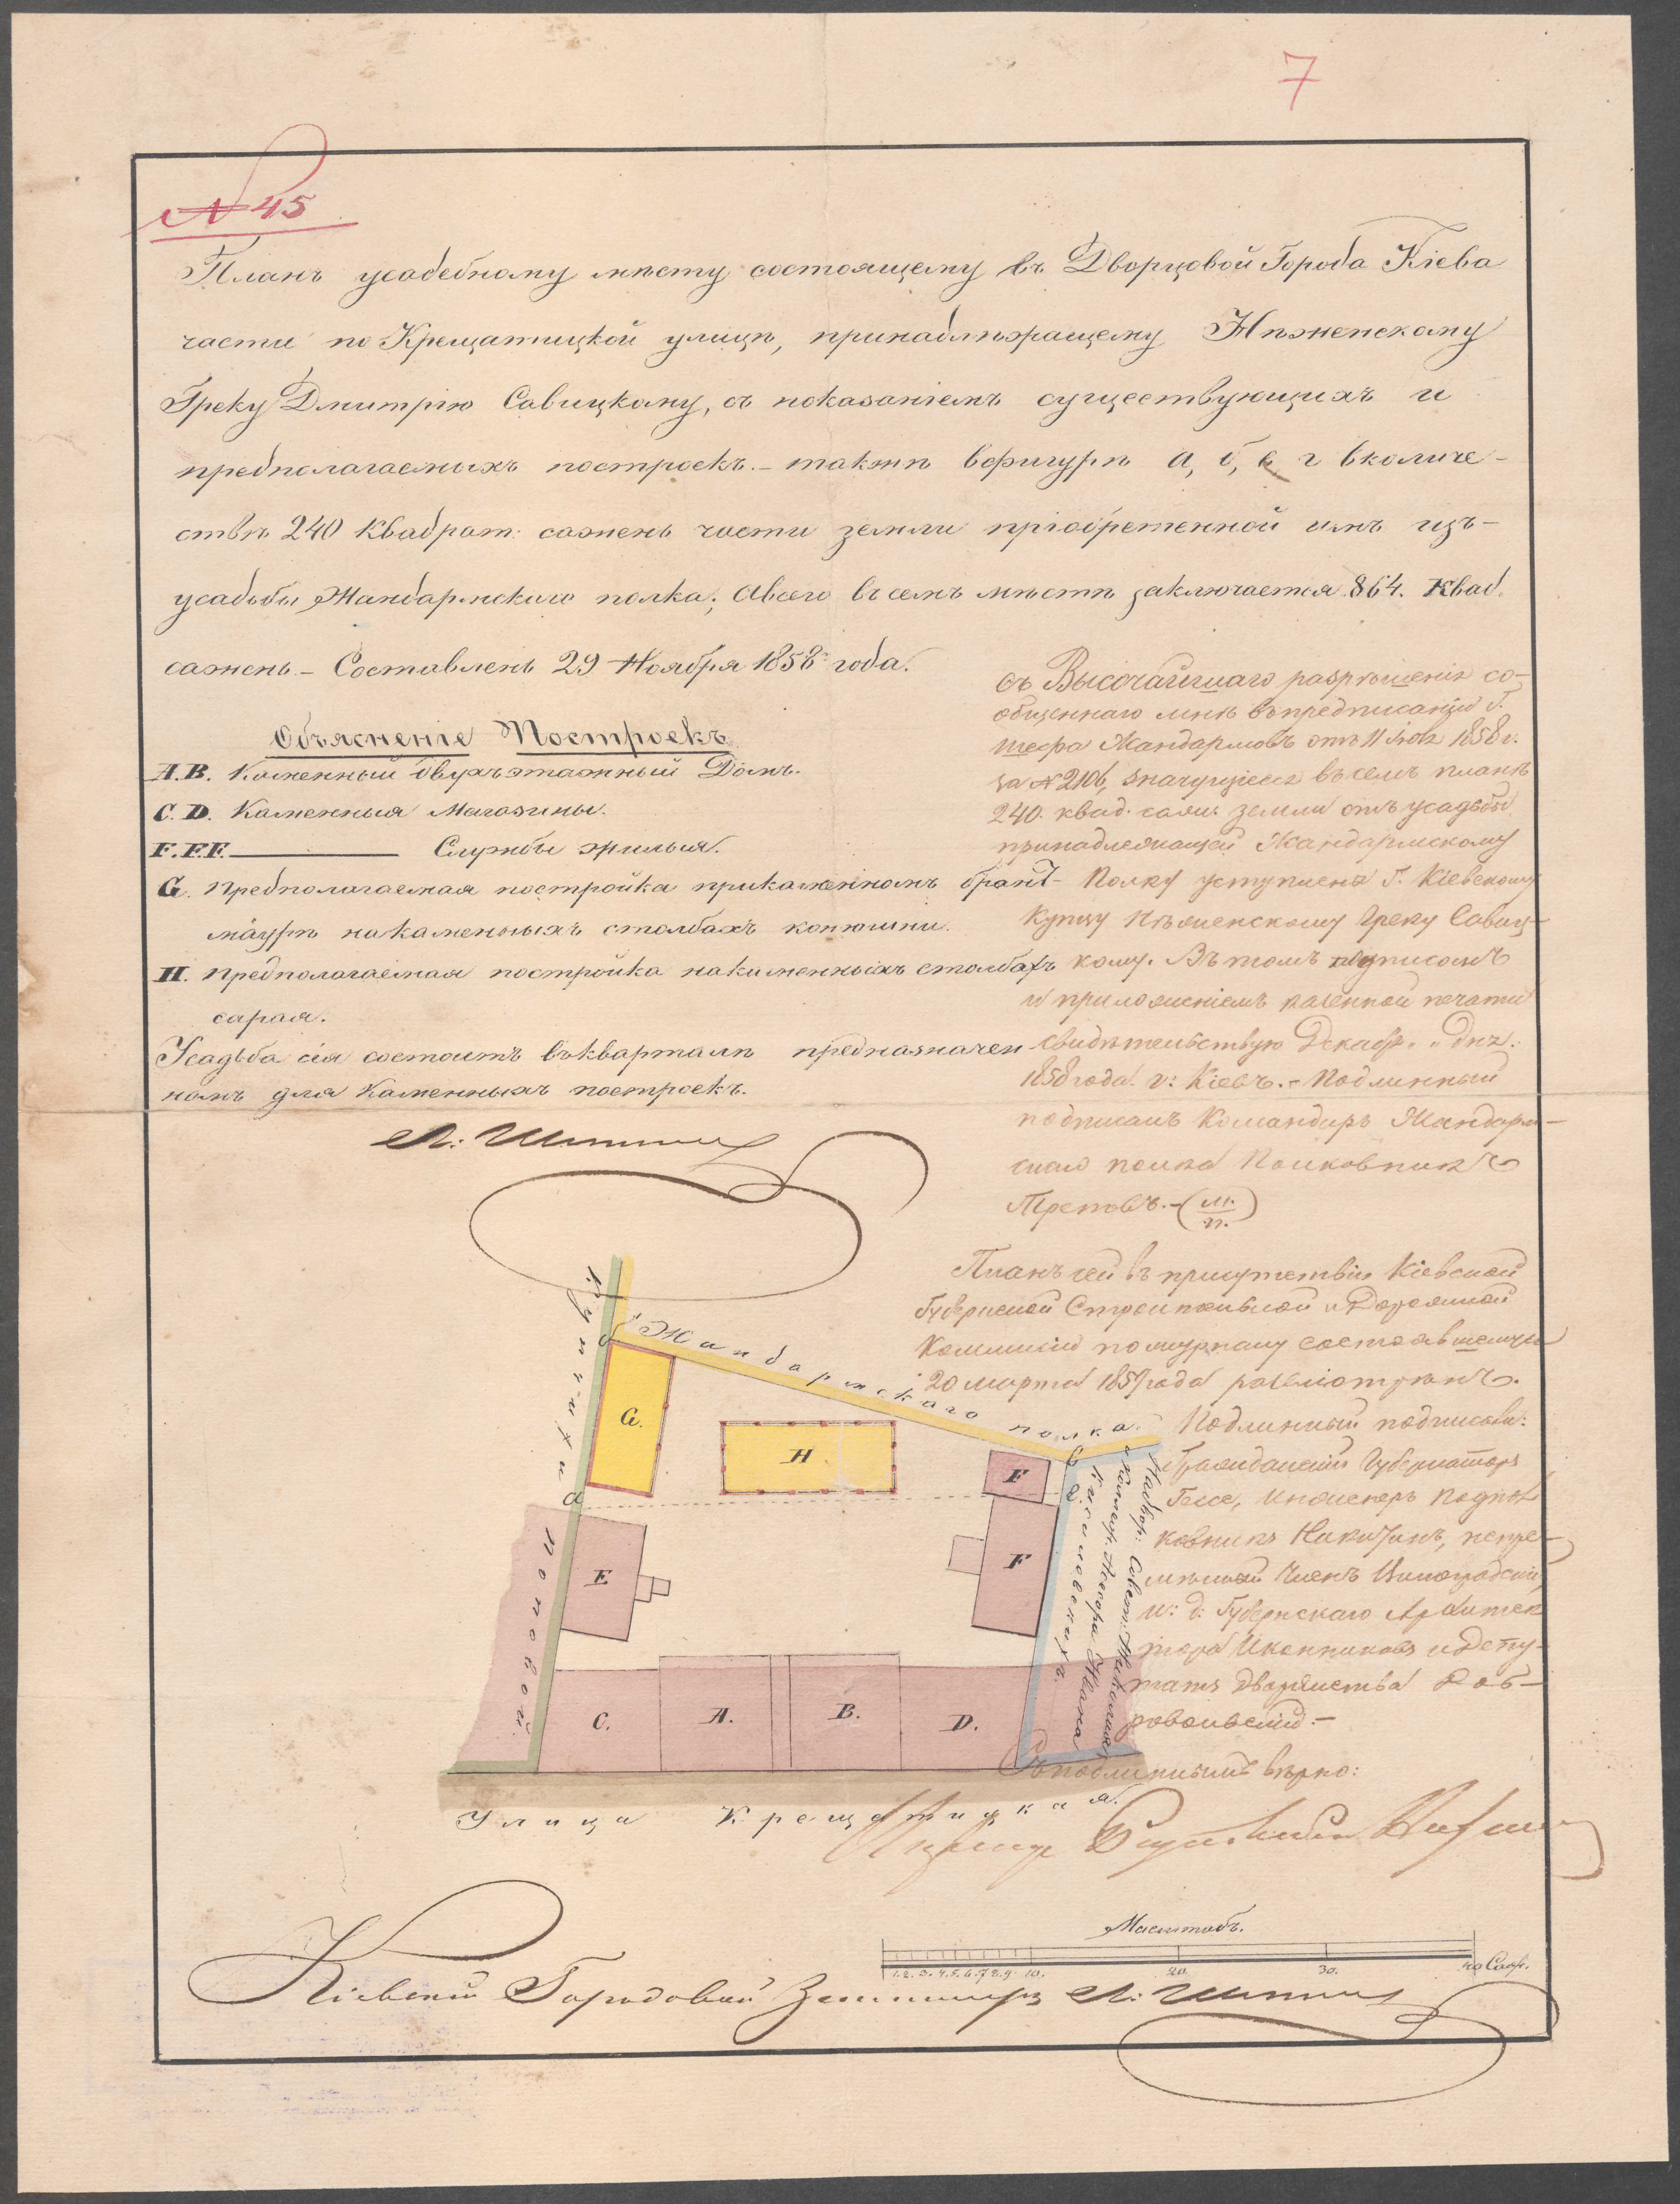 7
№ 45
Планъ усадебному мѣсту состоящему въ Дворцовой Города Кіева
части по Крещатицкой улицѣ, принадлѣжращему Нѣженскому
Греку Дмитрію Савицкому, съ показаніемъ существующихъ и
предполагаемыхъ построекъ. – такжѣ вфигурѣ а, б, в, г вколиче-
ствѣ 240 Квадрат: сажень части земли пріобретенной имъ изъ-
усадьбы Жандармскаго полка; Авсего въ семъ мѣстѣ заключается 864. Квад.
сажень – Составленъ 29 Ноября 1858 года.
Объясненіе Построекъ
A.B. Каменный двухъэтажный Домъ.
C.D. Каменныя Магазины.
F.F.F. Службы жилыя.
G. предполагаемая постройка прикаменномъ бранд-
мауѣръ накаменныхъ столбахъ конюшни.
H. предполагаемая постройка накаменныхъ столбахъ
сарая.
Усадьба сія состоитъ въкварталѣ предназначен
номъ для Каменныхъ построекъ.
Съ Высочайшаго разрѣшенія со-
общеннаго мнѣ въпредписаніи Г.
Шефа Жандармовъ отъ 11 1858 г.
за № 2106, значущіеся въ семъ планѣ
240. квад. саж: земли отъ усадьбы
принадлежащей Жандармскому
Полку уступлена Г. Кіевскому
Купцу Нѣженскому Греку Савиц-
кому. Въ томъ подписомъ
и приложеніемъ казенной печати
свидѣтельствую Декабр. „ дня.
1858 года. г: Кіевъ. – Подлинный
подписалъ Командиръ Жандарм-
скаго полка Полковникъ
Треповъ. – (М. П.)
Планъ сей въ присутствіи Кіевской
Губернской Строительной и Дорожной
Коммисіи по журналу состоявшемуся
20 Марта 1859 года разсмотрѣнъ.
Подлинный подписали:
Гражданскій Губернаторъ
Гессе, Инженеръ Подпол
ковникъ, непре-
мѣнный Членъ Виноградскій,
и: д: Губернскаго Архитек
тора Иконниковъ и Депу-
татъ Дворянства Доб-
ровольскій. –
Съ подлиннымъ вѣрно:
Жандармскаго полка.
Купчихи
Поповой.
Киселовскихъ.
Коллеж. Ассесора Ивана
Надвор: Совет:
а
б
в
г
G.
H
F
F
E
C.
A.
B.
D.
Улица Крещатицкая.
Масштабъ.
1. 2. 3. 4. 5. 6. 7. 8. 9. 10. 20. 30. 40 Саж.
Кіевскій Городовой Землемеръ